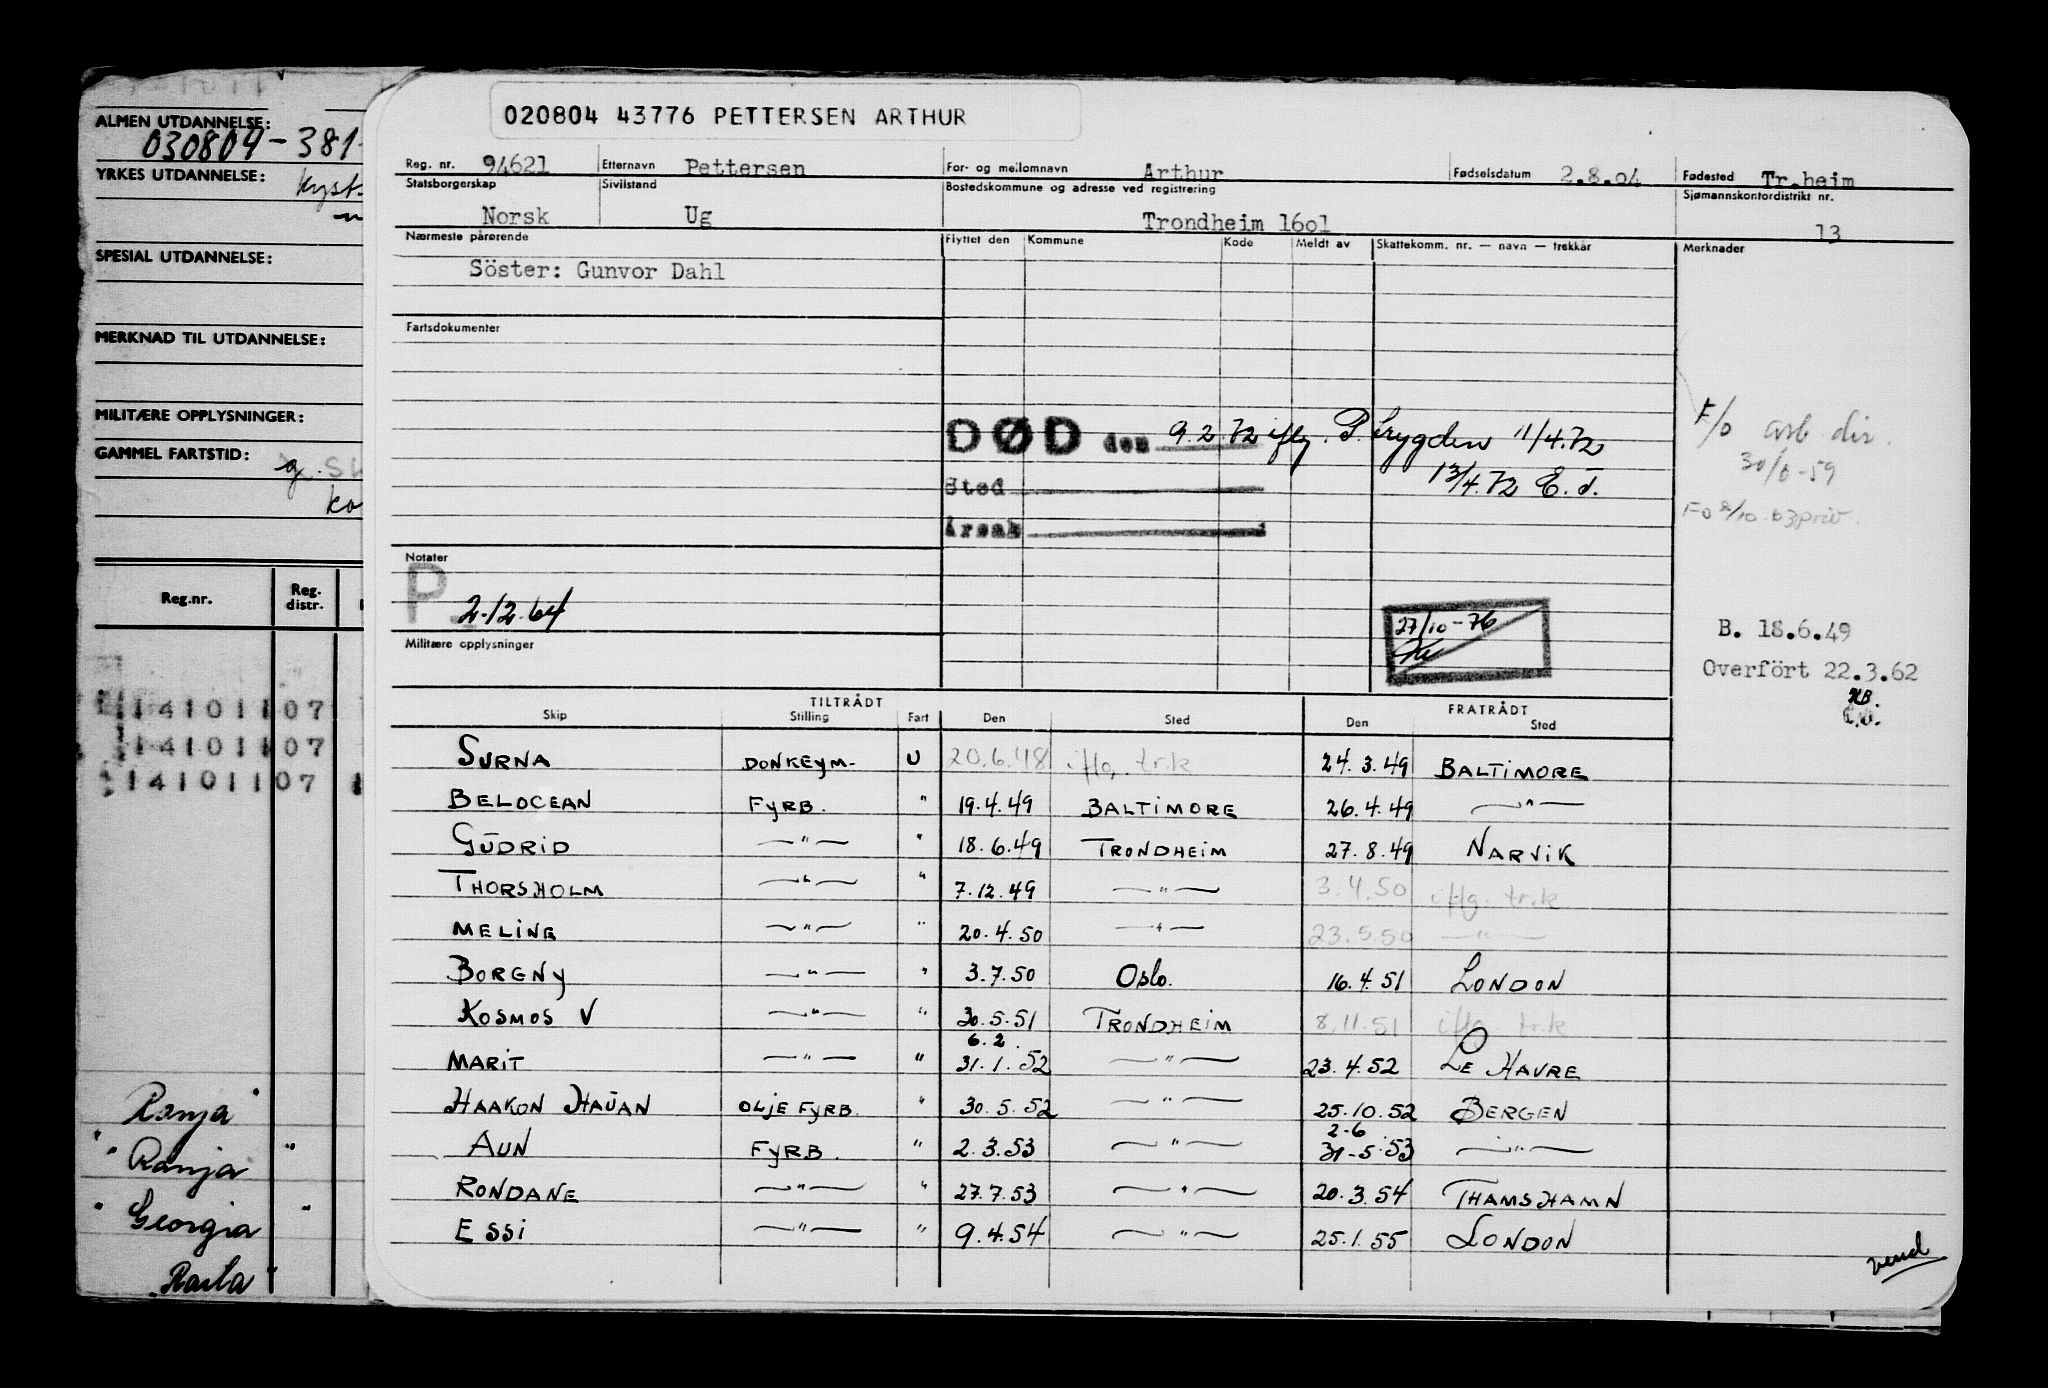 020804 43776 PETTERSEN ARTHUR
Reg. nr. 94621 Etternavn Pettersen For- og mellomnavn Arthur Fødselsdatum 2.8.04 Fødested Tr.heim
Statsborgerskap Norsk Sivilstand Ug Bostedskommune og adresse ved registrering Trondheim 1601 Sjømannskontordistrikt nr. 13
Nærmeste pårørende Flyttet den Kommune Kode Meldt av Skattekomm. nr. — navn — trekkår Merknader
Söster: Gunvor Dahl
Fartsdokumenter
DØD den 9.2.72 iflg. P.trygden 11/4.72
13/4.72 E.T.
Sted
Årsak
F/o arb dir.
30/6-59
Fo 8/10.63 priv.
Notater
P 2.12.64
27/10-76
Militære opplysninger
B. 18.6.49
Overfört 22.3.62
TILTRÅDT FRATRÅDT
Skip Stilling Fart Den Sted Den Sted
SURNA DONKEYM- U 20.6.48 iflg. tr.k 24.3.49 BALTIMORE
BELOCEAN FYRB. " 19.4.49 BALTIMORE 26.4.49 —"—
GUDRID —"— " 18.6.49 TRONDHEIM 27.8.49 NARVIK
THORSHOLM —"— " 7.12.49 —"— 3.4.50 iflg. tr.k
MELINE —"— " 20.4.50 —"— 23.5.50 —"—
BORGNY —"— " 3.7.50 OSLO. 16.4.51 LONDON
KOSMOS V —"— " 30.5.51 TRONDHEIM 8.11.51 iflg. tr.k
6.2.
MARIT —"— " 31.1.52 —"— 23.4.52 LE HAVRE
HAAKON HAUAN OLJE FYRB. " 30.5.52 —"— 25.10.52 BERGEN
2-6
AUN FYRB. " 2.3.53 —"— 31-5.53 —"—
RONDANE —"— " 27.7.53 —"— 20.3.54 THAMSHAMN
ESSI —"— " 9.4.54 —"— 25.1.55 LONDON
vend
ALMEN UTDANNELSE:
030804-381
YRKES UTDANNELSE: kyst-
SPESIAL UTDANNELSE:
MERKNAD TIL UTDANNELSE:
MILITÆRE OPPLYSNINGER:
GAMMEL FARTSTID:
ko
Reg.nr. Reg. distr.
14101107
14101107
14101107
Ranja "
" Ranja "
" Georgia "